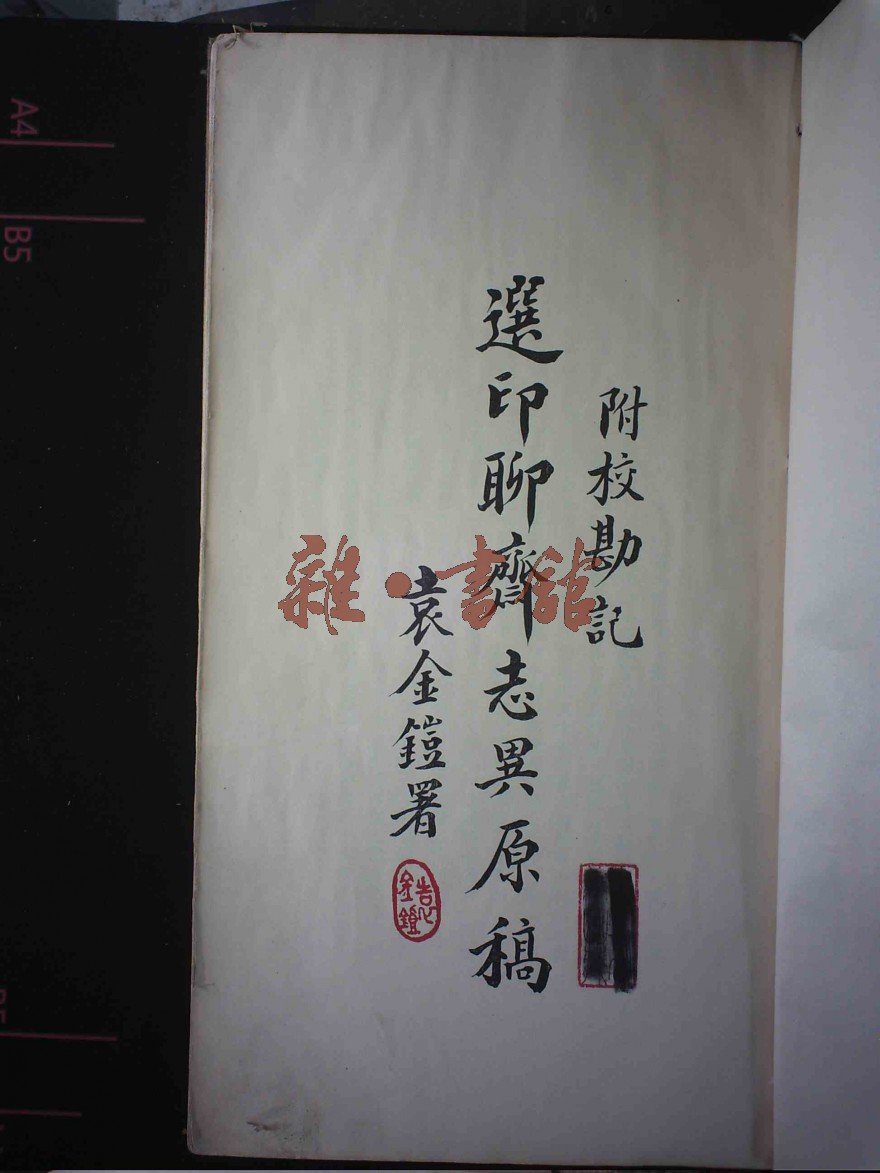 附校勘記
選印聊齋志異原稿
袁金鎧署
雜·書館
A4
B5